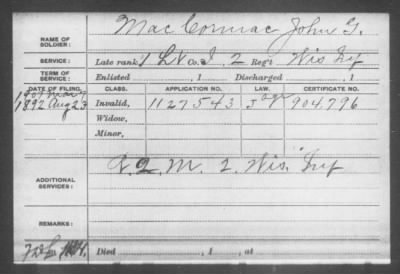 NAME OF SOLDIER: MacCormac John G.
SERVICE: Late rank, 1 Lt Co. I, 2 Reg't Wis Inf
TERM OF SERVICE: Enlisted , 1 Discharged , 1
DATE OF FILING. CLASS. APPLICATION NO. LAW. CERTIFICATE NO.
1907 Mar 7
1892 Aug 23 Invalid, 1127543 J 904796
Widow,
Minor,
ADDITIONAL SERVICES: R. Q. M. 2. Wis. Inf
REMARKS:
Died , 1 , at